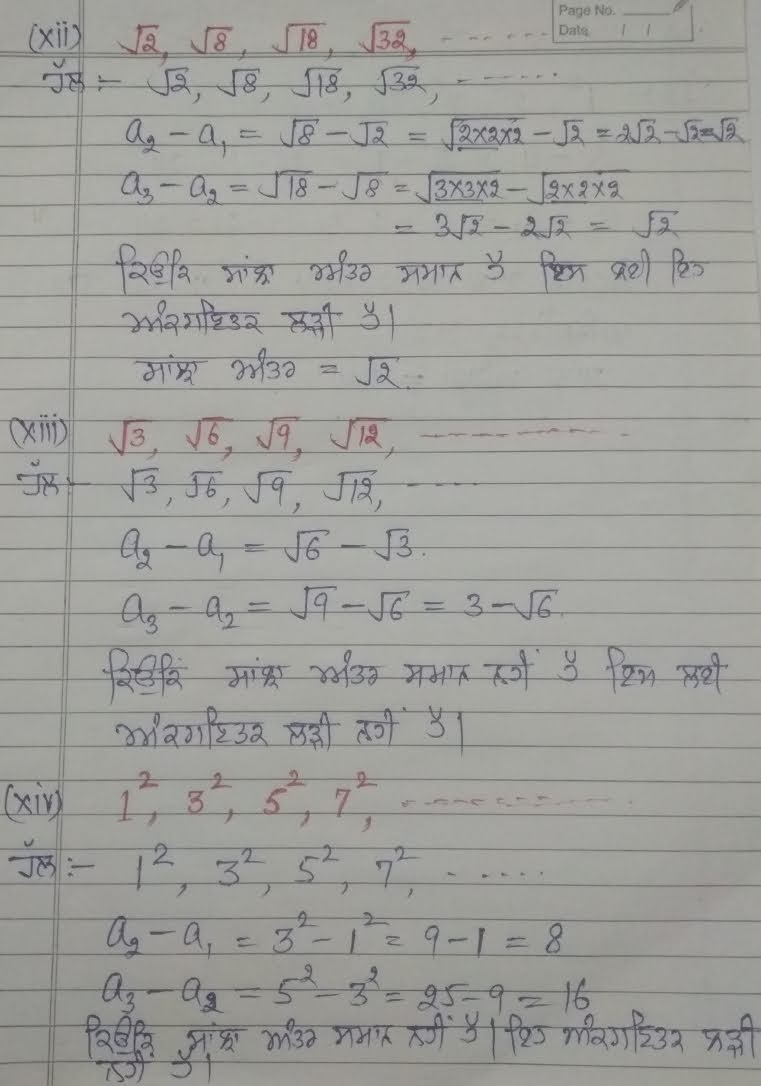 Page No.
Date
(xii) √2, √8, √18, √32, ------
ਹੱਲ :- √2, √8, √18, √32, ------
a₂ - a₁ = √8 - √2 = √2×2×2 - √2 = 2√2 - √2 = √2
a₃ - a₂ = √18 - √8 = √3×3×2 - √2×2×2
= 3√2 - 2√2 = √2
ਕਿਉਂਕਿ ਸਾਂਝਾ ਅੰਤਰ ਸਮਾਨ ਹੈ ਇਸ ਲਈ ਇਹ
ਅੰਕਗਣਿਤਕ ਲੜੀ ਹੈ।
ਸਾਂਝਾ ਅੰਤਰ = √2.
(xiii) √3, √6, √9, √12, ------
ਹੱਲ :- √3, √6, √9, √12, -----
a₂ - a₁ = √6 - √3.
a₃ - a₂ = √9 - √6 = 3 - √6.
ਕਿਉਂਕਿ ਸਾਂਝਾ ਅੰਤਰ ਸਮਾਨ ਨਹੀਂ ਹੈ ਇਸ ਲਈ
ਅੰਕਗਣਿਤਕ ਲੜੀ ਨਹੀਂ ਹੈ।
(xiv) 1², 3², 5², 7², ------
ਹੱਲ :- 1², 3², 5², 7², -----
a₂ - a₁ = 3² - 1² = 9 - 1 = 8
a₃ - a₂ = 5² - 3² = 25 - 9 = 16
ਕਿਉਂਕਿ ਸਾਂਝਾ ਅੰਤਰ ਸਮਾਨ ਨਹੀਂ ਹੈ। ਇਹ ਅੰਕਗਣਿਤਕ ਲੜੀ
ਨਹੀਂ ਹੈ।